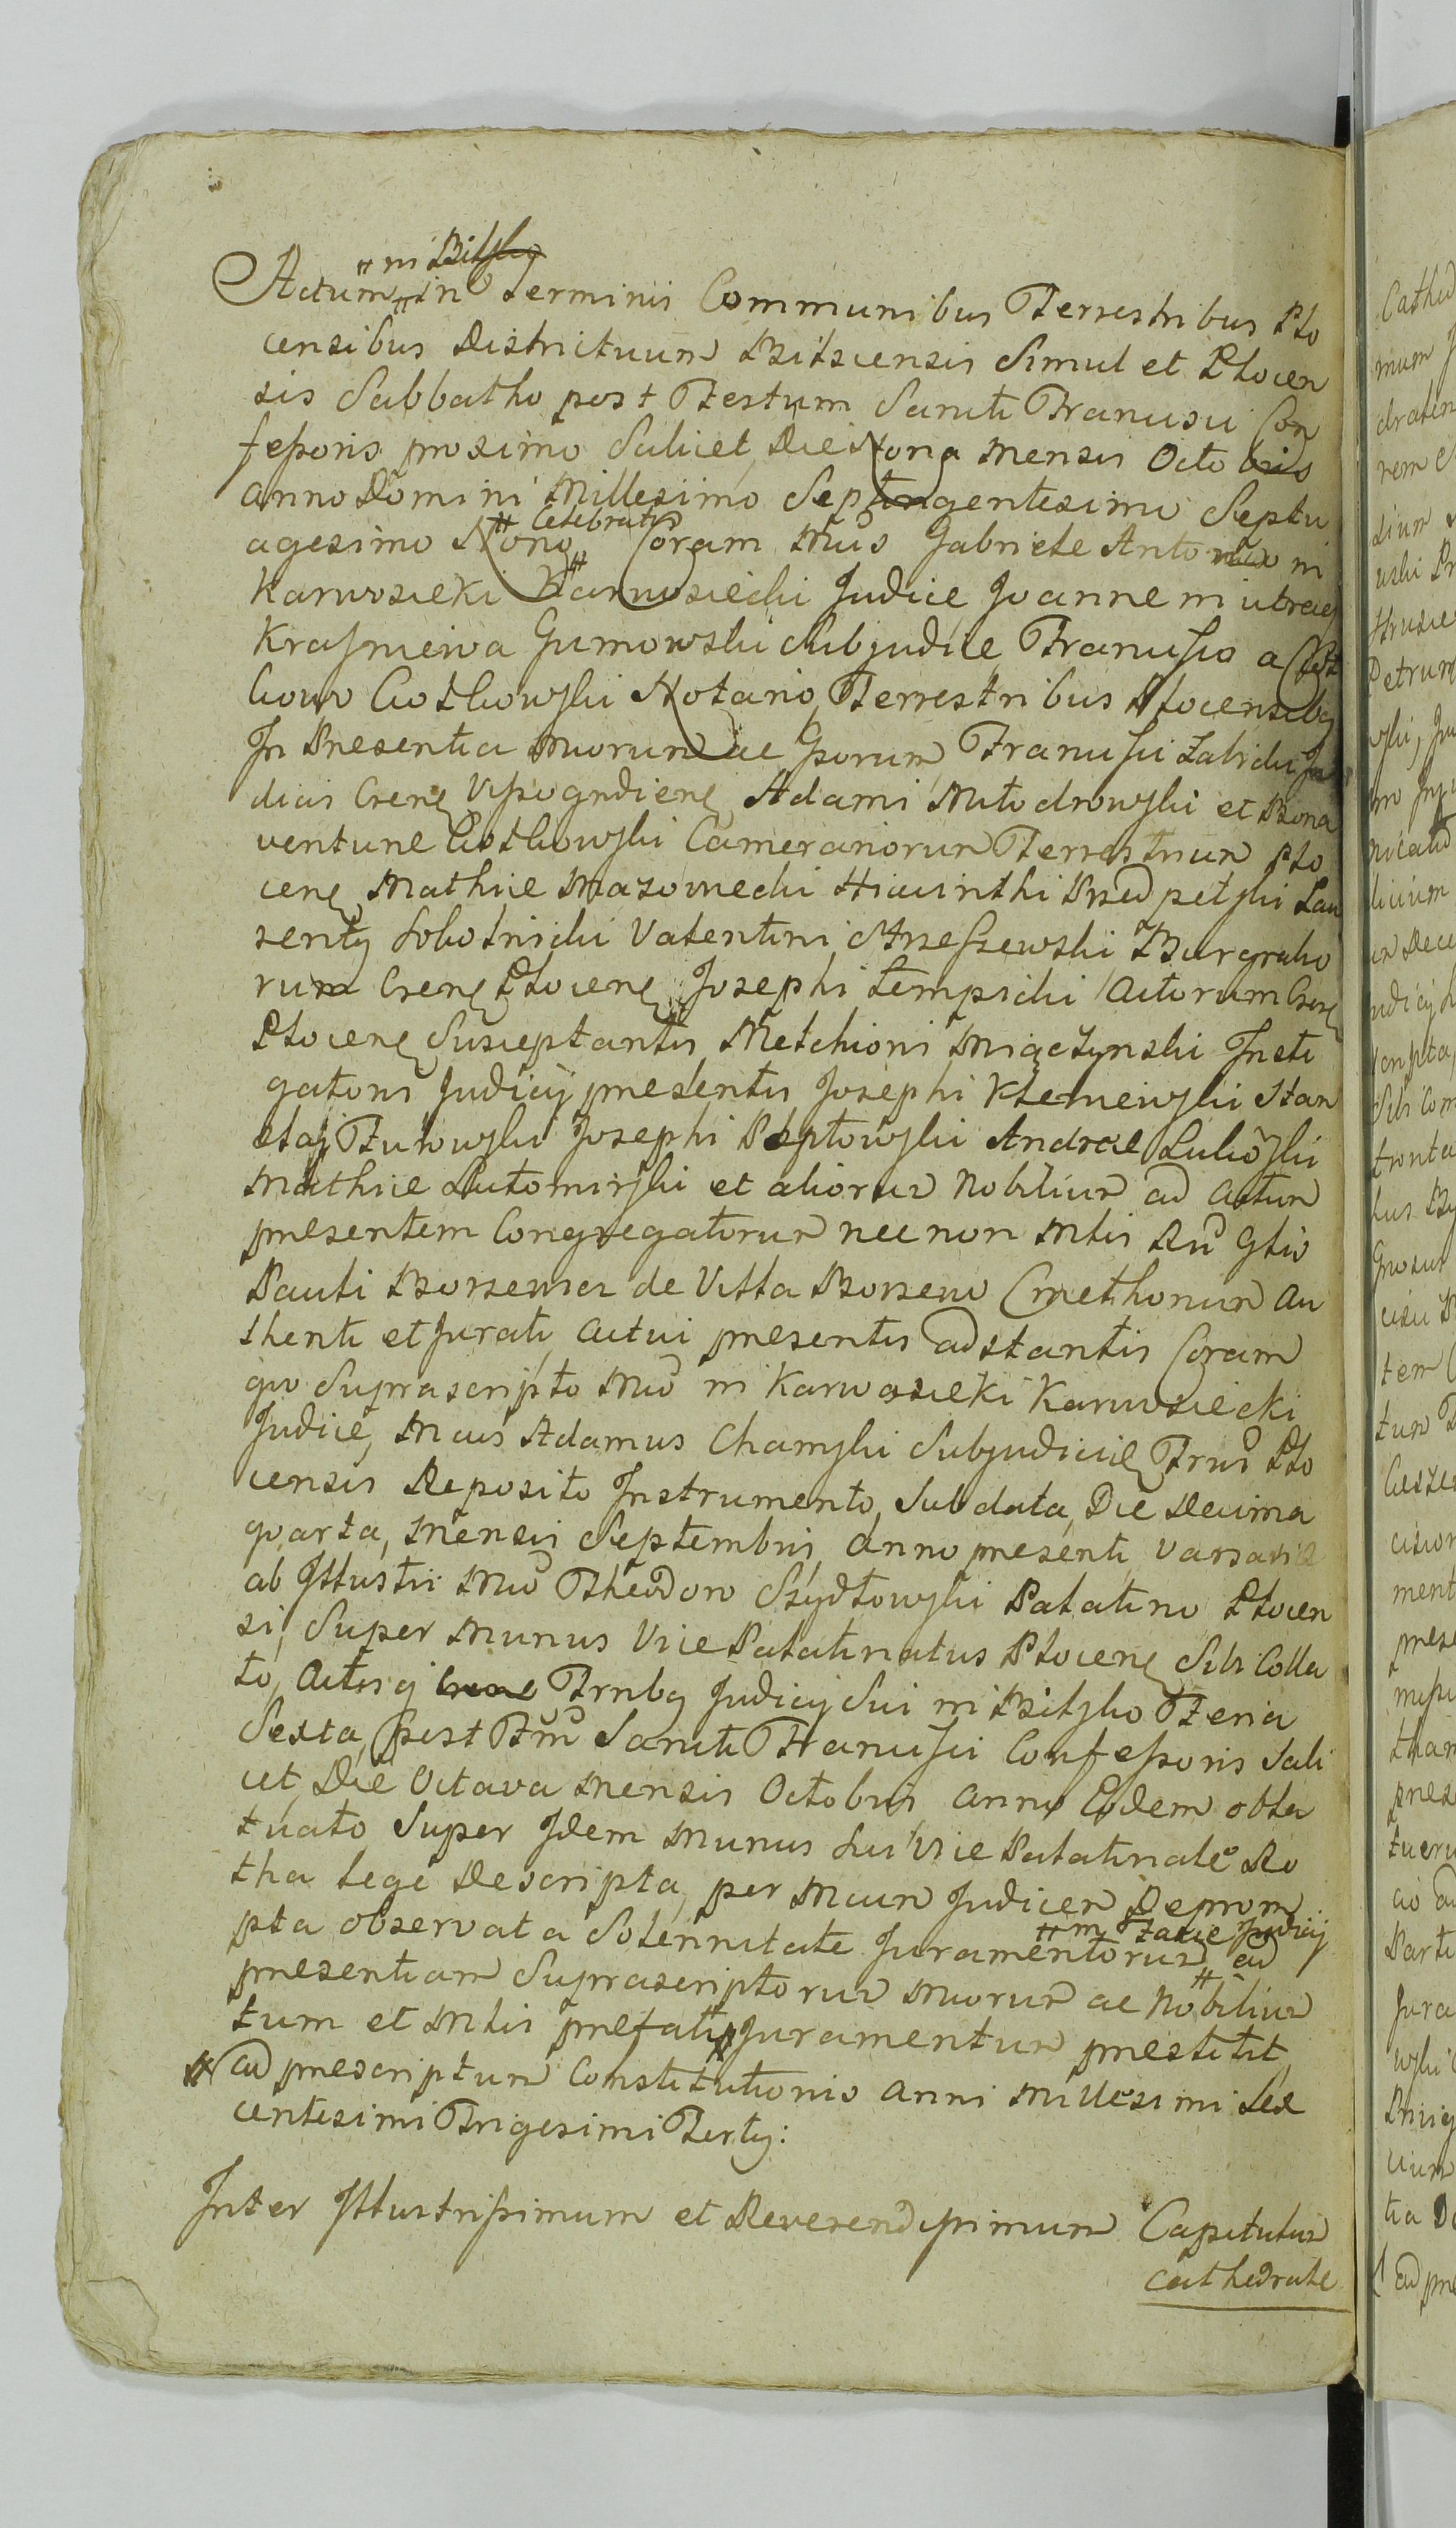 # in Bilsko
Actum # in Terminis Communibus Terrestribus Plo
censibus Districtuum Bilscensis Simul et Plocen
sis Sabbatho post Festum Sancti Francisci Con
fessoris proximo Scilicet Die Nona mensis Octobris
anno Domini Millesimo Septingentesimo Septu
# Celebratis
agesimo Nono # Coram Mcis Gabriele Antonio in
Karwosieki Karwosiecki Judice Joanne in utraq
Krasniewa Gumowski Subjudice Francisco a Ciot
kowo Ciotkowski Notario Terrestribus Plocensibq
In Presentia Mcorum ac Gsorum Francisci Zabicki Ju
dicis Crens Vyssogrdiens Adami Młodrowski et Bona
venturae Ciotkowski Camerariorum Terrestrium Plo
cens Mathiae Mazowiecki Hiacinthi Przedpelski Lau
renty Sobotnicki Valentini Strzeszewski Burgrabio
rum Crens Plocens Josephi Lempicki Actorum Crens
Plocens Susceptantis Melchioris Miączynski Insti
gatoris Judicij presentis Josephi Klemewski Stan
islaj Turowski Josephi Peptowski Andreae Lukoski
Mathiae Lutomirski et aliorum Nobilium ad Actum
presentem Congregatorum nec non Mlis Ru Glis
Pauli Borzewicz de Villa Borzewo Cmethonum au
thenti et Jurati actui presentis adstantis Coram
quo Suprascripto Mco in Karwosieki Karwosiecki
Judice, Mcus Adamus Chamski Subjudicis Trris Plo
censis Reposito Instrumento, Sub data, Die Decima
quarta, Mensis Septembris, Anno presenti, Varsaviae
ab Illustri Mco Theodoro Szydłowski Palatino Plocen
si, Super Munus Vice Palatinatus Plocens Sibi Colla
to, Actisq Trribq Judicij Sui in Bilsko Feria
Sexta, post Ftum Sancti Francisci Confessoris Scili
cet, Die Octava Mensis Octobris Anno Eodem obla
tuato Super Idem Munus Sui Vice Palatinale Ro
tha lege Descripta, per Mcum Judicem Deprom
# in Facie Judicij
pta observata Solennitate Juramentorum # ad
presentiam Suprascriptorum Mcorum ac Nobilium
tum et Mlis prefati # Juramentum prestitit
# ad prescriptum Constitutionis Anni Millesimi Sex
centesimi Trigesimi Terty:
Inter Illustrissimum et Reverendissimum Capitulum
Cathedrale